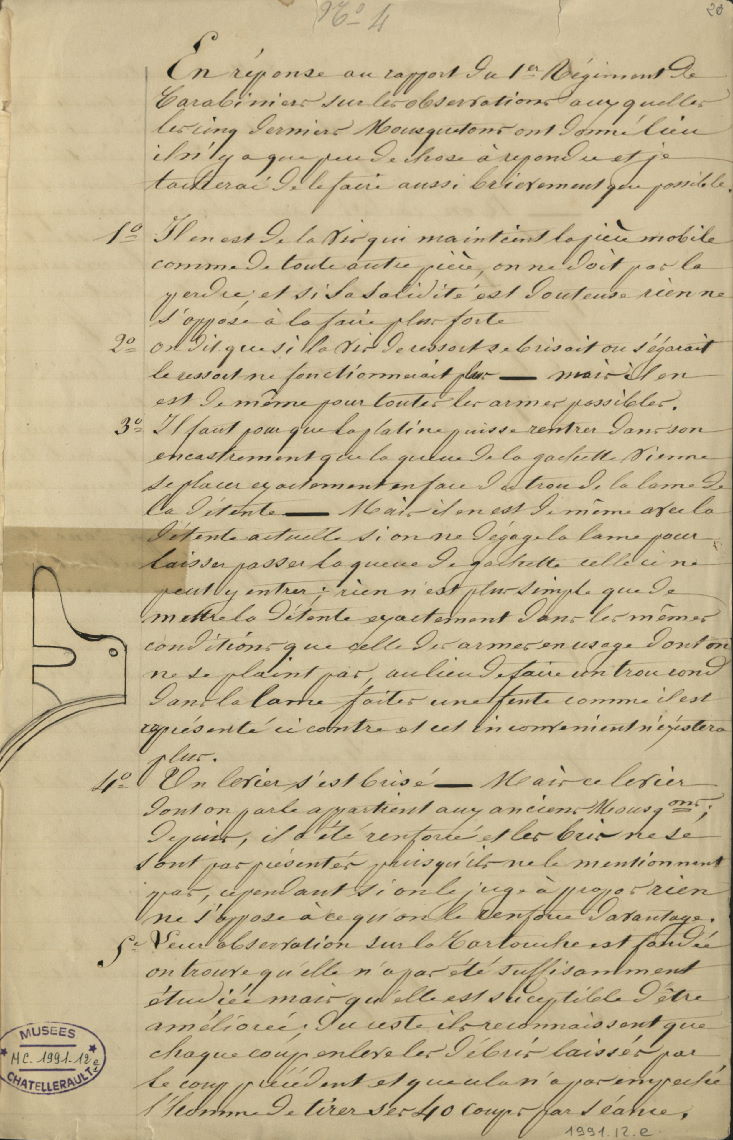 N° 4
20
En réponse au rapport du 1er Régiment de
Carabiniers sur les observations auxquelles
les cinq derniers Mousquetons ont donné lieu
il n'y a que peu de chose à répondre et je
tacherai de le faire aussi brièvement que possible.
1° Il en est de la Vis qui maintient la pièce mobile
comme de toute autre pièce, on ne doit pas la
perdre; et si sa solidité est douteuse rien ne
s'oppose à la faire plus forte
2° on dit que si la Vis de ressort se brisait ou s'égarait
le ressort ne fonctionnerait plus — mais il en
est de même pour toutes les armes possibles.
3° Il faut pour que la platine puisse rentrer dans son
encastrement que la queue de la gachette Vienne
se placer exactement en face du trou de la lame de
la détente — Mais il en est de même avec la
détente actuelle si on ne dégage la lame pour
laisser passer la queue de gachette celle ci ne
peut y entrer; rien n'est plus simple que de
mettre la détente exactement dans les mêmes
conditions que celle des armes en usage dont on
ne se plaint pas, au lieu de faire un trou rond
dans la lame faites une fente comme il est
représenté ci contre et cet inconvenient n'existera
plus.
4° Un levier s'est brisé — Mais ce levier
dont on parle appartient aux anciens Mousqons;
depuis, il a été renforcé et les bris ne se
sont pas présentés puisqu'ils ne le mentionnent
pas, cependant si on le juge à propos rien
ne s'oppose à ce qu'on le renforce davantage.
5° Leur observation sur la Cartouche est fondée
on trouve qu'elle n'a pas été suffisamment
étudiée mais qu'elle est susceptible d'être
améliorée; du reste ils reconnaissent que
chaque coup enlève les débris laissés par
le coup précédent et que cela n'a pas empêché
l'homme de tirer ses 40 coups par séance.
MUSEES
MC. 1991-12e
CHATELLERAULT
1991.12.e.